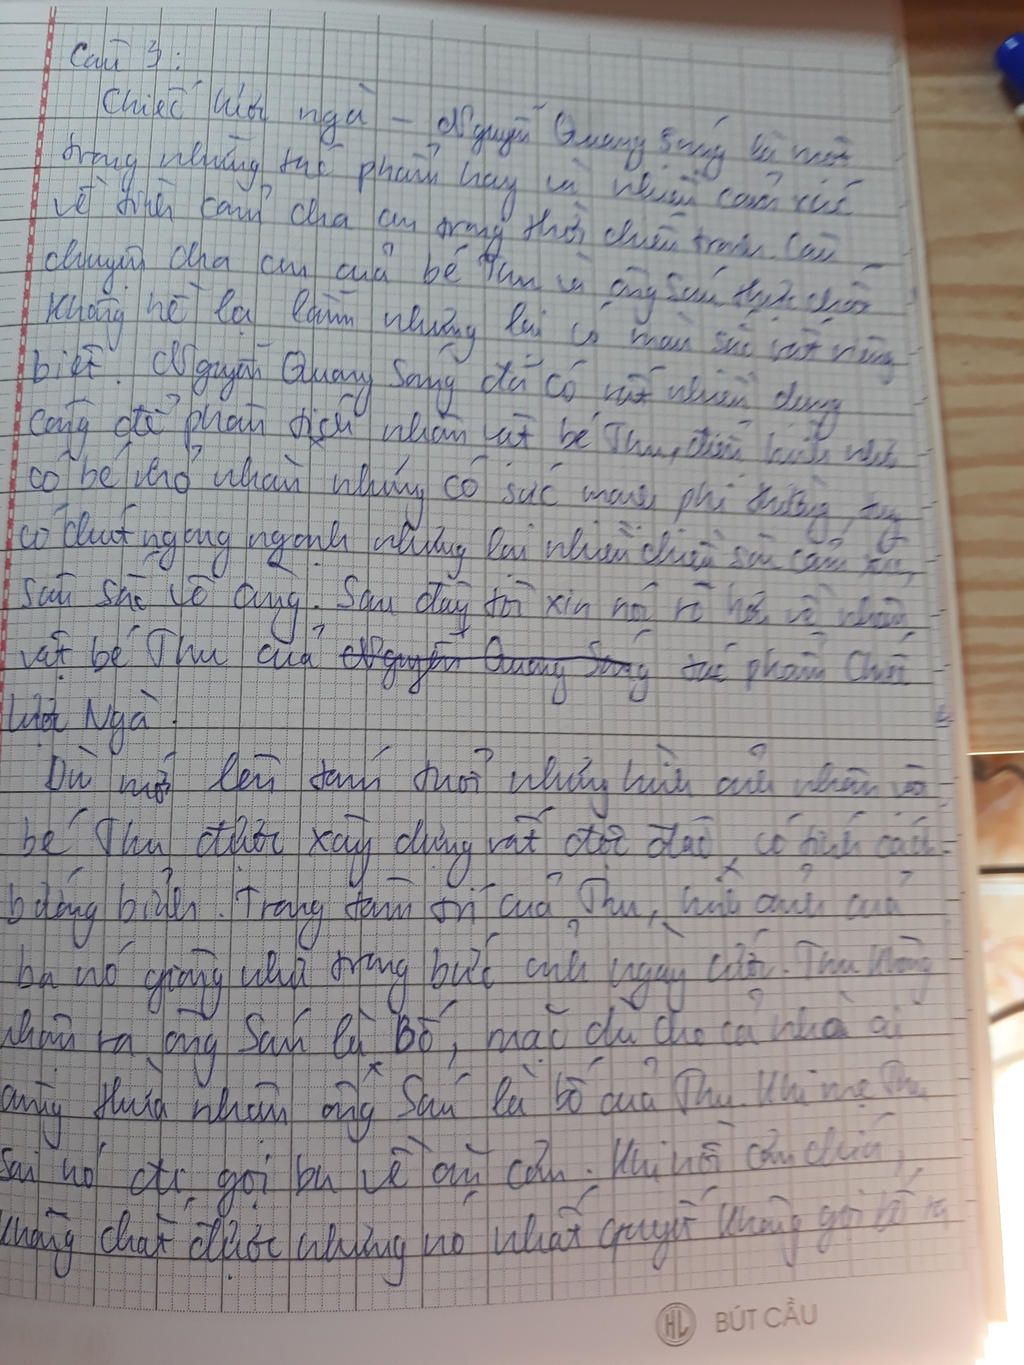 Câu 3:
Chiếc lược ngà - Nguyễn Quang Sáng là một
trong những tác phẩm hay và nhiều cảm xúc
về tình cảm cha con trong thời chiến tranh. Câu
chuyện cha con của bé Thu và ông Sáu thực chất
không hề lạ lẫm nhưng lại có màu sắc rất riêng
biệt. Nguyễn Quang Sáng đã có rất nhiều dụng
công để phân tích nhân vật bé Thu, điển hình như
cô bé nhỏ nhắn nhưng có sức mạnh phi thường, tuy
có chút ngang ngạnh nhưng lại nhiều chiều sâu cảm xúc,
sâu sắc vô cùng. Sau đây tôi xin nói rõ hơn về nhân
vật bé Thu của Nguyễn Quang Sáng tác phẩm Chiếc
Lược Ngà.
Dù mới lên tám tuổi nhưng hình ảnh nhân vật
bé Thu được xây dựng rất đặc có tính cách
bướng bỉnh. Trong tâm trí của Thu, hình ảnh của
ba nó giống như trong bức ảnh ngày cưới. Thu không
nhận ra ông Sáu là Bố, mặc dù cho cả nhà ai
cũng thừa nhận ông Sáu là bố của Thu. Khi mẹ Thu
sai nó đi gọi ba về ăn cơm. Khi nồi cơm chín,
không chắt được nhưng nó nhất quyết không gọi bố ra
HL BÚT CẦU